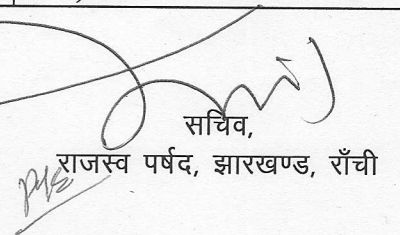 सचिव,
राजस्व पर्षद, झारखण्ड, राँची